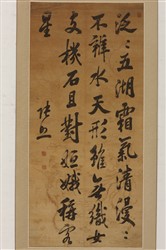 泛〻五湖霜氣清漫〻
不辨水天形雖無織女
支機石且對姮娥稱客
星
張照